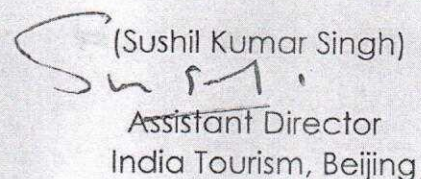 (Sushil Kumar Singh)
Assistant Director
India Tourism, Beijing